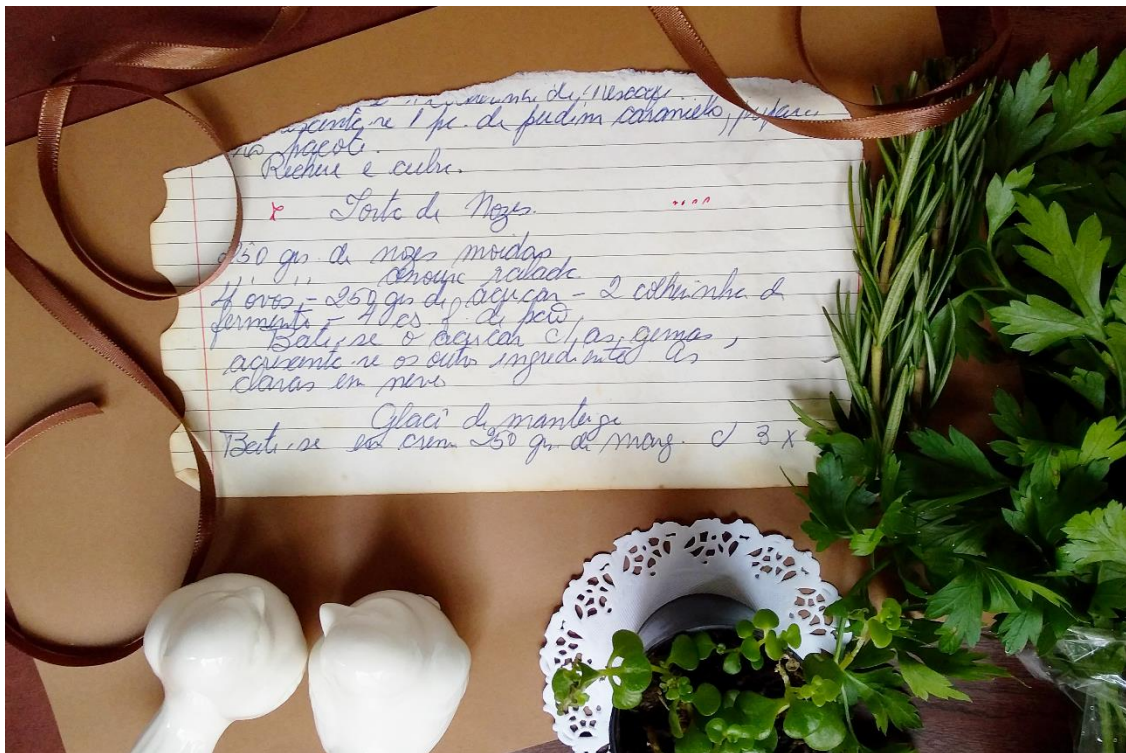 de
acrescenta-se 1 pc. de pudim caramelo, prepare
no pacote.
Recheie e cubra.
x Torta de Nozes.
250 grs. de nozes moidas
" " cenoura ralada
4 ovos, - 250 grs de açucar - 2 colherinha de
fermento - 4 cs f. de pão,
Bate-se o açucar c/ as gemas,
acrescenta-se os outros ingredientes As
claras em neve
Glacê de manteiga
Bate-se em creme 250 grs de marg. c/ 3 x